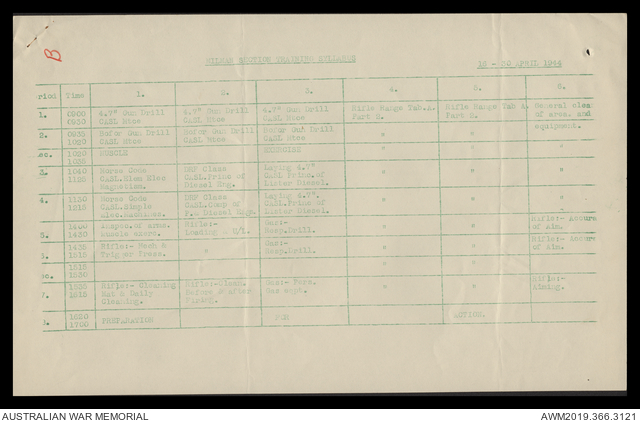 B
TRAINING SYLLABUS 16 - 30 APRIL 1944
1. 2. 3. 4. 5. 6.
eriod Time
1. 0900 4.7" Gun Drill 4.7" Gun Drill 4.7" Gun Drill Rifle Range Tab.A. Rifle Range Tab A. General clean
0930 CASL Mtce CASL Mtce CASL Mtce Part 2. Part 2. of area. and
2. 0935 Bofor Gun Drill Bofor Gun Drill Bofor Gun Drill " " equipment.
1020 CASL Mtce CASL Mtce CASL Mtce
ec. 1020 " " "
1035
3. 1040 Morse Code DRF Class Laying 4.7" " " "
1125 CASL.Elem Elec CASL.Princ of CASL Princ.of
Magnetism. Diesel Eng. Lister Diesel.
4. 1130 Morse Code DRF Class Laying 4.7". " " "
1215 CASL.Simple CASL.Comp & CASL.Princ of
Elec.Machines. Lister Diesel.
1400 Inspec.of arms. Rifle:- Gas:- " " Rifle:- Accura
5. 1430 Muscle exerc. Loading & U/L. Resp.Drill. of Aim.
1435 Rifle:- " Gas:- " " Rifle:- Accur
1515 Trigger Press. Resp.Drill. of Aim.
1515 " "
1530
1535 Rifle:- Cleaning Rifle:-Clean. Gas:- " " Rifle:-
1615 Mat & Daily Before & After Gas Aiming.
Cleaning. Firing.
1620 PREPARATION FOR ACTION.
1700
AUSTRALIAN WAR MEMORIAL AWM2019.366.3121